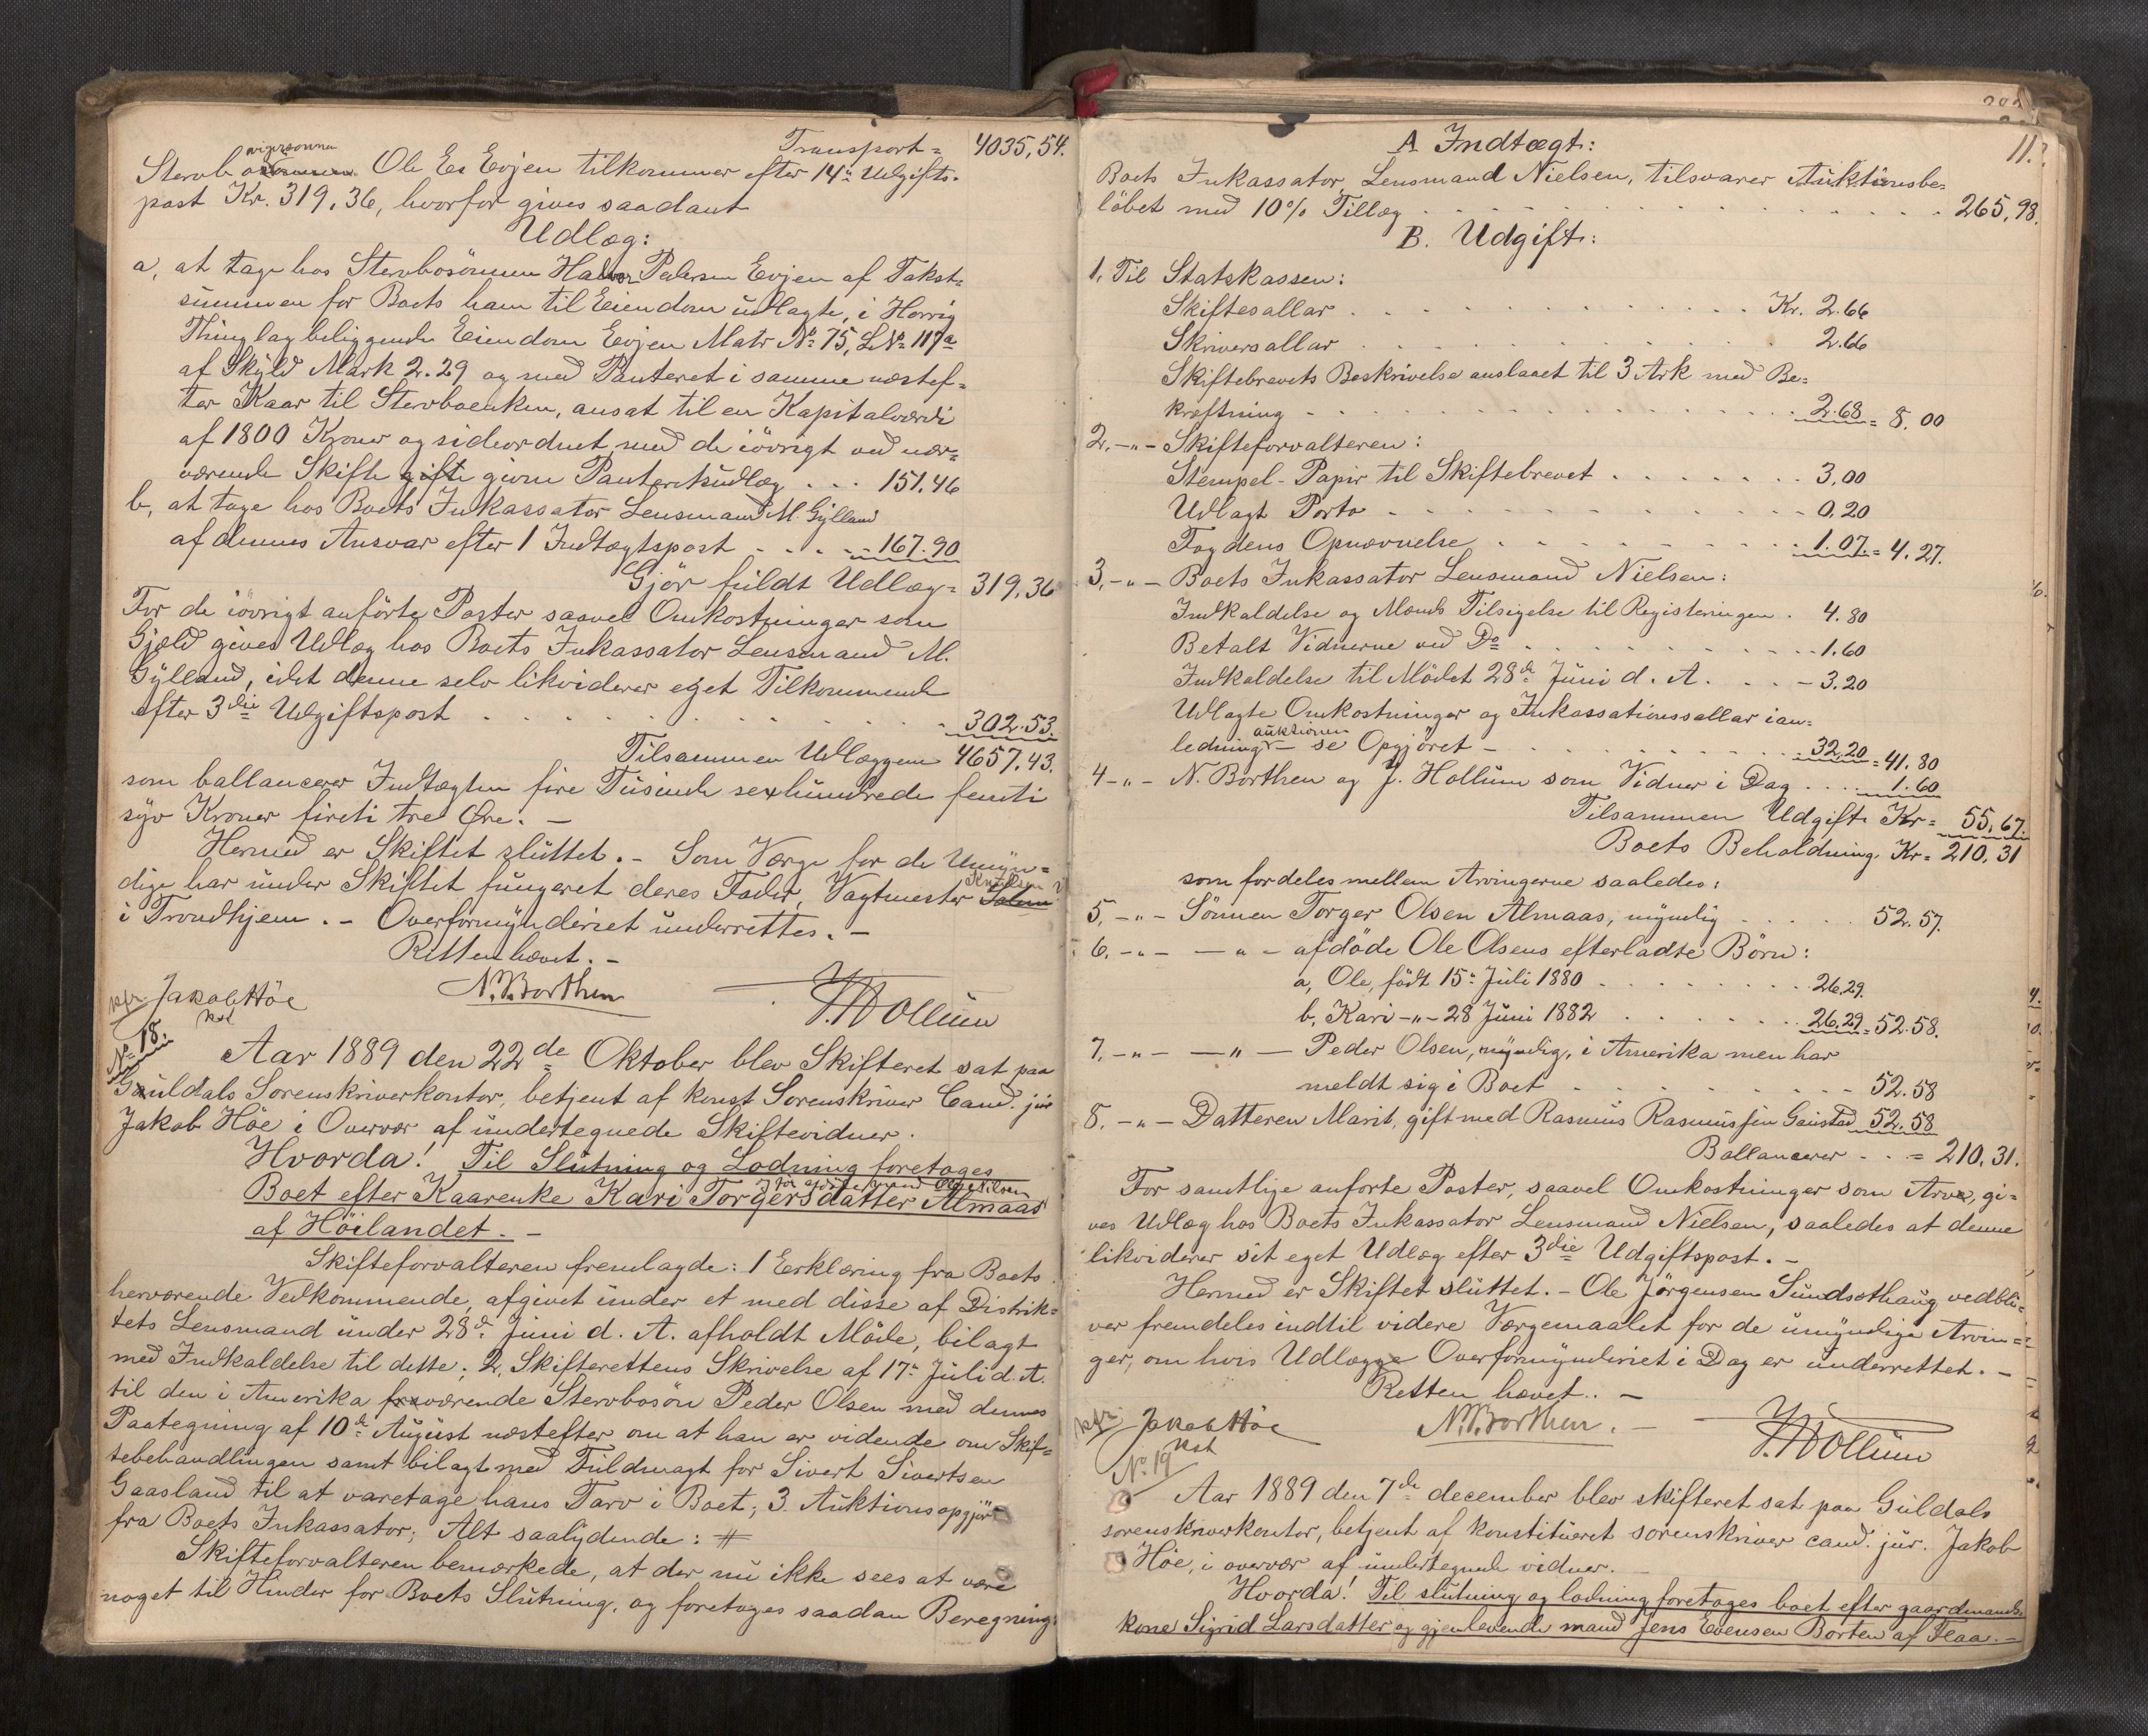 Transport = 4035,54.
Ole Es Evjen tilkommer efter 14de Udgifts-
post Kr. 319,36, hvorfor gives saadant
Udlæg:
a, at tage hos Stervbosönnen Halvor Pedersen Evjen af Takst=
summen for Boets ham til Eiendom udlagte, i Horrig
Thinglag beliggende Eiendom Evjen Matr No 75, LNo 117a
af Skyld Mark 2.29 og med Panteret i samme næstef=
ter Kaar til Stervboenken, ansat til en Kapitalværdi
af 1800 Kroner og sideordnet med de iövrigt ved nær=
værende Skifte givne Panteretsudlæg . . . 151.46
b, at tage hos Boets Inkassator Lensmand M. Gylland
af dennes Ansvar efter 1 Indtægtspost - . . . - 167.90
Gjör fuldt Udlæg = 319,36
For de iövrigt anförte Poster saavel Omkostninger som
Gjæld gives Udlæg hos Boets Inkassator Lensmand M.
Gylland, idet denne selv likviderer eget Tilkommende
efter 3die Udgiftspost . . . . . . . . . . 302.53.
Tilsammen Udlæggene 4657.43.
som ballancerer Indtægten fire Tusinde sexhundrede femti
syv Kroner firti tre Øre. -
Hermed er Skiftet sluttet. - Som Værge for de Umyn=
dige har under Skiftet fungeret deres Fader, Vagtmester
i Trondhjem. - Overformynderiet underrettes. -
Retten hævet. -
Jakob Höe
kst
N. Borthen
J. Hollum
No 18.
Aar 1889 den 22de Oktober blev Skifteret sat paa
Guldals Sorenskriverkontor, betjent af konst Sorenskriver Cand. jur
Jakob Höe i Overvær af undertegnede Skiftevidner.
Hvorda! Til Slutning og Lodning foretages
Boet efter Kaarenke Kari Torgersdatter Almaas
af Höilandet. -
Skifteforvalteren fremlagde: 1 Erklæring fra Boets
herværende Vedkommende, afgivet under et med disse af Distrik=
tets Lensmand under 28de Juni d. A. afholdt Möde, bilagt
med Indkaldelse til dette; 2, Skifterettens Skrivelse af 17de Juli d. A.
til den i Amerika værende Stervbosön Peder Olsen med dennes
Paategning af 10de August næstefter om at han er vidende om Skif=
tebehandlingen samt bilagt med Fuldmagt for Sivert Sivertsen
Gaasland til at varetage hans Tarv i Boet; 3. Auktionsopgjör
fra Boets Inkassator; Alt saalydende: #
Skifteforvalteren bemærkede, at der nu ikke sees at være
noget til Hinder for Boets Slutning, og foretages saadan Beregning:
11.
A Indtægt:
Boets Inkassator, Lensmand Nielsen, tilsvarer Auktionsbe=
löbet med 10% Tillæg . . . . . . . . . . 265,98.
B. Udgift:
1, Til Statskassen:
Skiftesallar . . . . . . . . . . Kr. 2.66
Skriversallar . . . . . . . . . . 2.66
Skiftebrevets Beskrivelse anslaaet til 3 Ark med Be=
kræftning - . . . . . . . . . . 2.68 = 8.00
2, -"- Skifteforvalteren:
Stempel-Papir til Skiftebrevet . . . . . . . 3,00
Udlagt Porto - . . . . . . . . . . - 0,20
Fogdens Opnævnelse . . . . . . . . . . 1.07. = 4.27.
3, -"- Boets Inkassator Lensmand Nielsen:
Indkaldelse og Mænds Tilsigelse til Registeringen . 4.80
Betalt Vidnerne ved Do . . . . . . . . . . 1.60
Indkaldelse til Mödet 28de Juni d. A. . . . - 3.20
Udlagte Omkostninger og Inkassationssallar ian=
auktionen
ledning - se Opgjöret - . . . . . . . . 32,20 = 41.80
4 -"- N. Borthen og J. Hollum som Vidner i Dag . . . 1.60
Tilsammen Udgift Kr = 55,67.
Boets Beholdning Kr = 210,31
som fordeles mellem Arvingerne saaledes:
5, -"- Sönnen Torger Olsen Almaas, myndig . . . . . 52.57.
6, -"- -"- afdöde Ole Olsens efterladte Börn:
a, Ole, födt 15de Juli 1880 . . . . . . . . 26.29.
b, Kari -"- 28 Juni 1882 . . . . . . . 26,29 = 52.58.
7, -"- -"- Peder Olsen, myndig, i Amerika men har
meldt sig i Boet - . . . . . . . . . . 52.58
8. -"- Datteren Marit, gift med Rasmus Rasmussen Gaustad 52.58
Ballancerer - . . = 210,31.
For samtlige anförte Poster, saavel Omkostninger som Arv, gi=
ves Udlæg hos Boets Inkassator Lensmand Nielsen, saaledes at denne
likviderer sit eget Udlæg efter 3die Udgiftspost. -
Hermed er Skiftet sluttet. - Ole Jörgensen Sundsethaug vedbli=
ver fremdeles indtil videre Værgemaalet for de umyndige Arvin=
ger, om hvis Udlægge Overformynderiet i Dag er underrettet. -
Retten hævet. -
Jakob Höe
kst
N. Borthen.
J. Hollum
No 19
Aar 1889 den 7de december blev skifteret sat paa Guldals
sorenskriverkontor, betjent af konstitueret sorenskriver cand. jur. Jakob
Höe, i overvær af undertegnede vidner.
Hvorda! Til slutning og lodning foretages boet efter gaardmands=
kone Sigrid Larsdatter og gjenlevende mand Jens Evensen Borten af Flaa. -